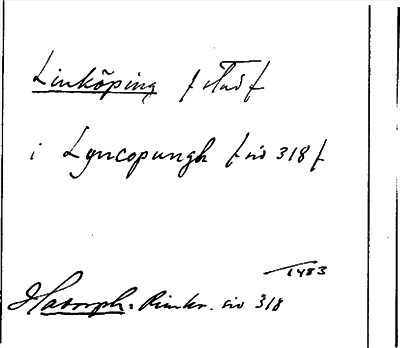 Linköping /stad/
i Lyncopungh / sid 318 /
1483
Hadorph. Rimkr. sid 318